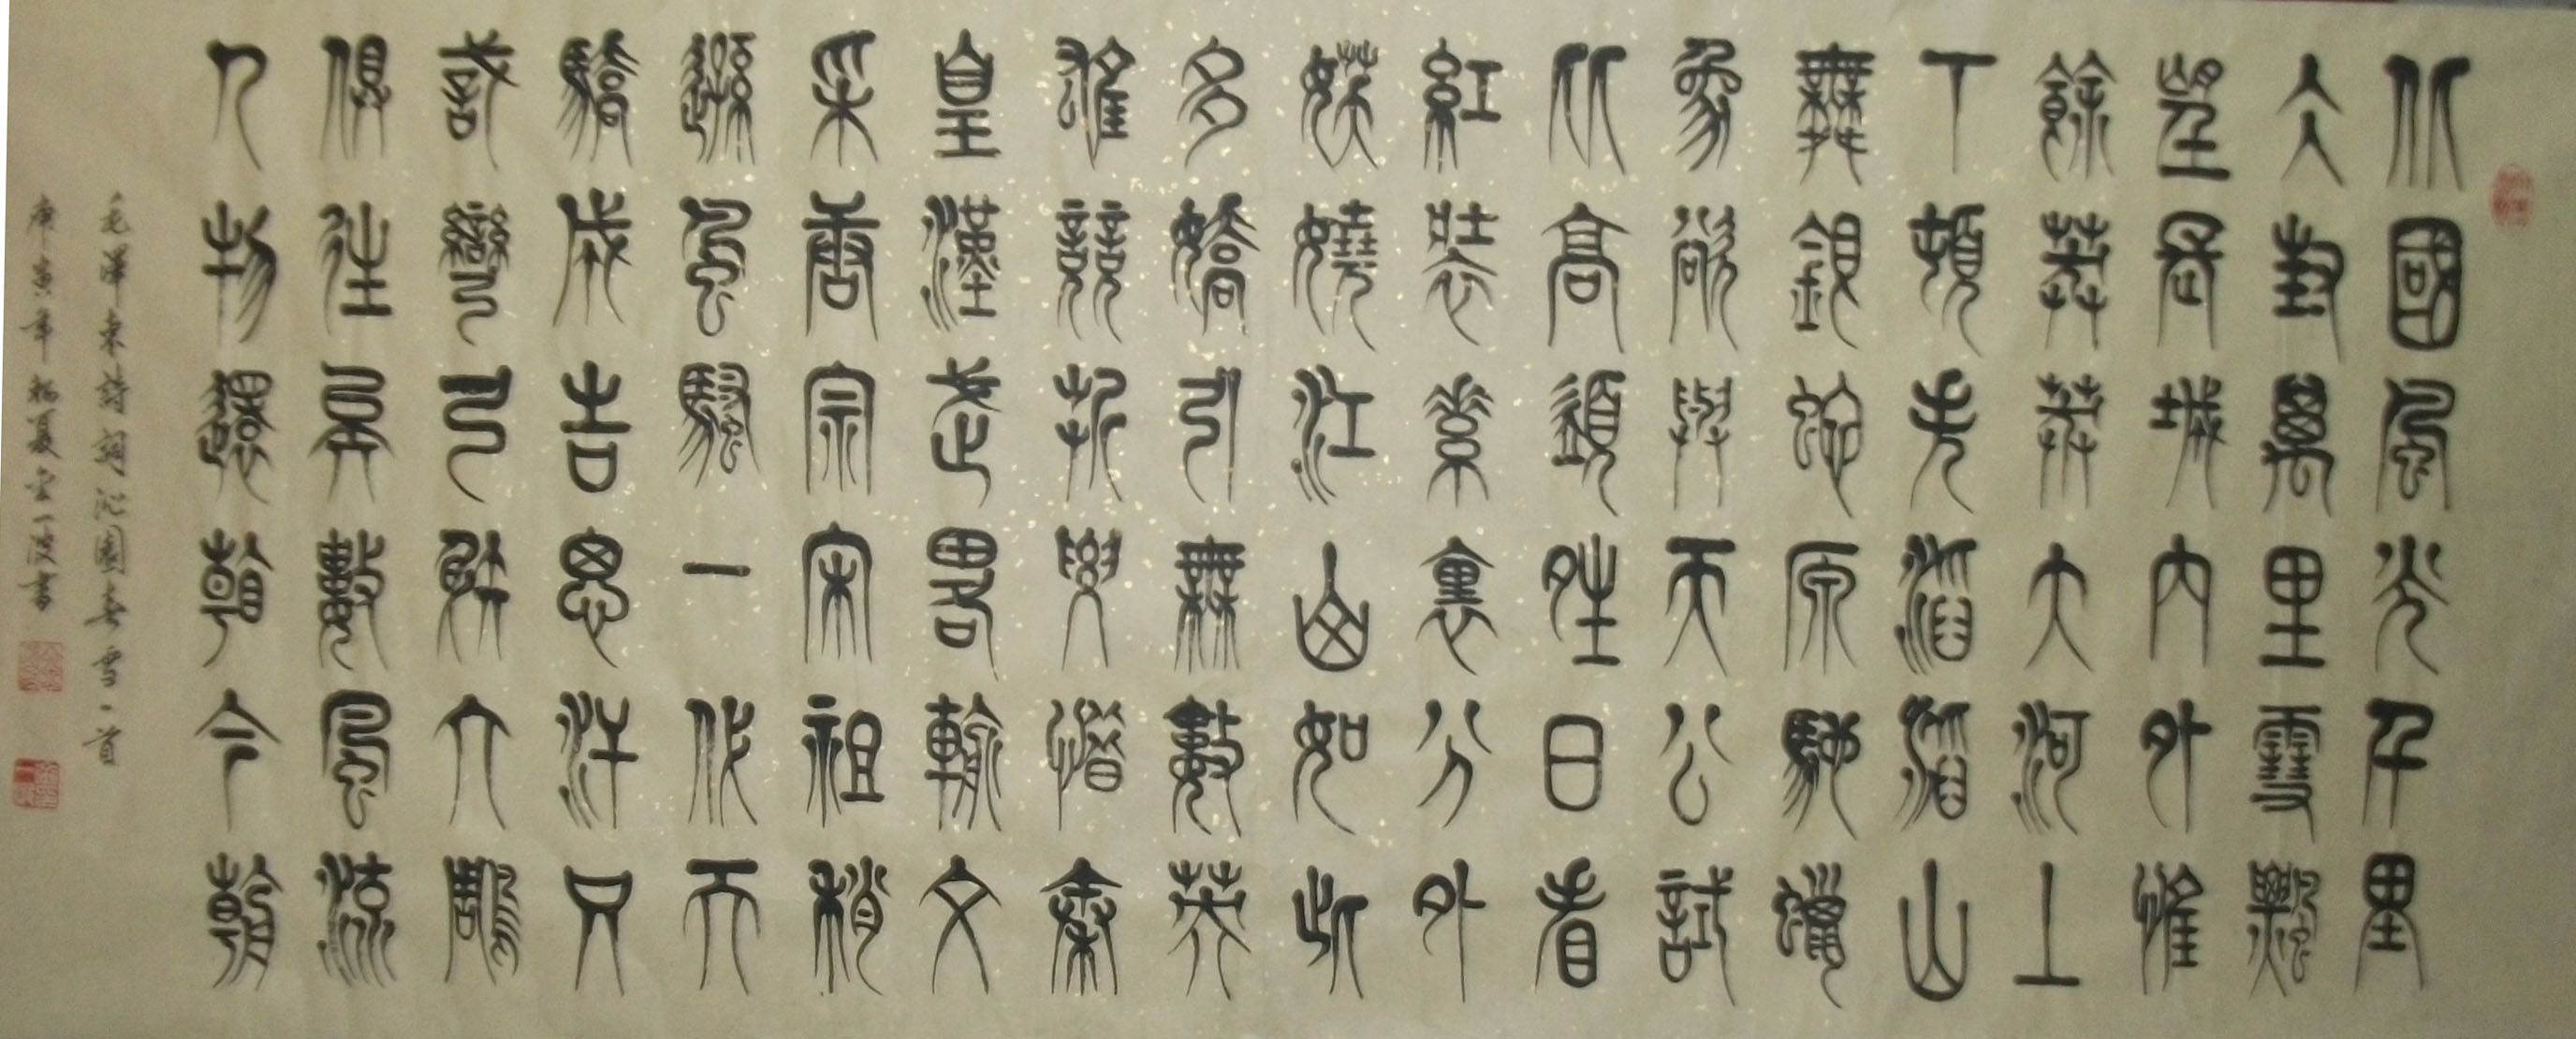 北國風光千里
仌封萬里雪飄
望長城內外惟
餘莽莽大河上
下頓失滔滔山
舞銀蛇原馳蠟
象欲與天公試
比高須晴日看
紅裝素裹分外
妖嬈江山如此
多嬌引無數英
雄競折要惜秦
皇漢武略輸文
采唐宗宋祖稍
遜風騷一代天
驕成吉思汗只
識彎弓射大雕
俱往矣數風流
人物還看今朝
毛澤東詩詞沁園春雪一首
庚寅年初夏書